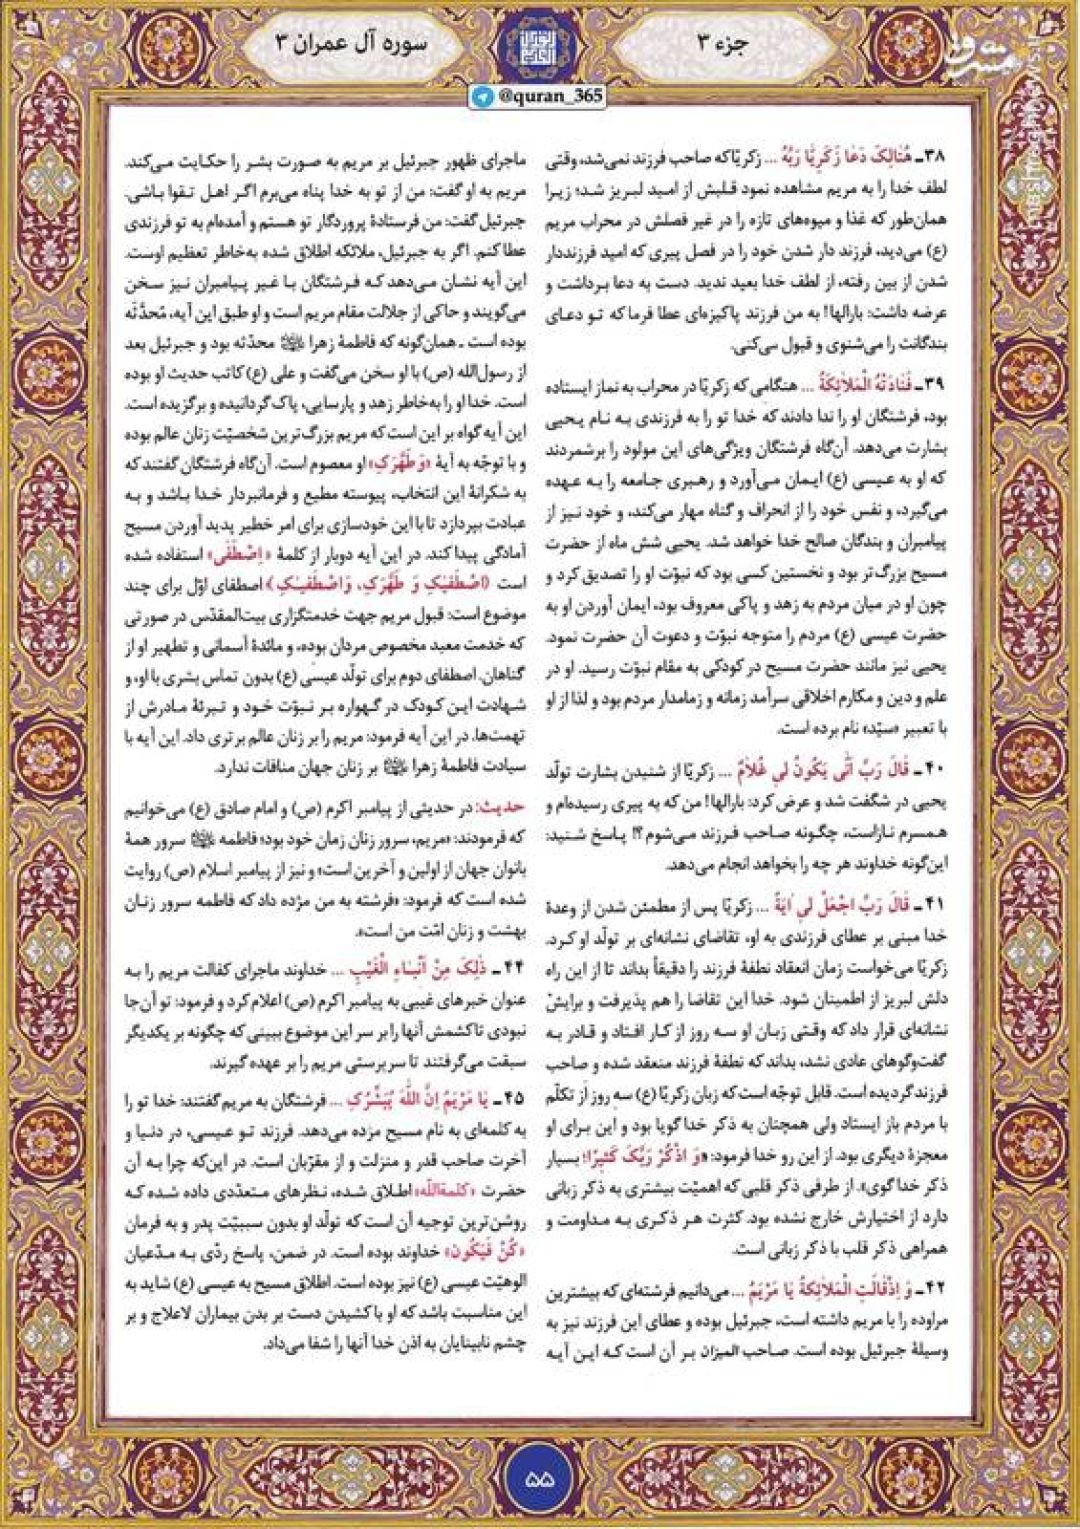 جزء ۳
سوره آل عمران ۳
@quran_365
مشرق
mashreghnews.ir
۳۸ـ هُنَالِکَ دَعَا زَکَرِیَّا رَبَّهُ ... زکریّا که صاحب فرزند نمی‌شد، وقتی
لطف خدا را به مریم مشاهده نمود قلبش از امید لبریز شد؛ زیرا
همان‌طور که غذا و میوه‌های تازه را در غیر فصلش در محراب مریم
(ع) می‌دید، فرزند دار شدن خود را در فصل پیری که امید فرزنددار
شدن از بین رفته، از لطف خدا بعید ندید. دست به دعا برداشت و
عرضه داشت: بارالها! به من فرزند پاکیزه‌ای عطا فرما که تو دعای
بندگانت را می‌شنوی و قبول می‌کنی.
۳۹ـ فَنَادَتْهُ الْمَلَائِکَةُ ... هنگامی که زکریّا در محراب به نماز ایستاده
بود، فرشتگان او را ندا دادند که خدا تو را به فرزندی به نام یحیی
بشارت می‌دهد. آن‌گاه فرشتگان ویژگی‌های این مولود را برشمردند
که او به عیسی (ع) ایمان می‌آورد و رهبری جامعه را به عهده
می‌گیرد، و نفس خود را از انحراف و گناه مهار می‌کند، و خود نیز از
پیامبران و بندگان صالح خدا خواهد شد. یحیی شش ماه از حضرت
مسیح بزرگ‌تر بود و نخستین کسی بود که نبوّت او را تصدیق کرد و
چون او در میان مردم به زهد و پاکی معروف بود، ایمان آوردن او به
حضرت عیسی (ع) مردم را متوجه نبوّت و دعوت آن حضرت نمود.
یحیی نیز مانند حضرت مسیح در کودکی به مقام نبوّت رسید. او در
علم و دین و مکارم اخلاقی سرآمد زمانه و زمامدار مردم بود و لذا از او
با تعبیر «سیّد» نام برده است.
۴۰ـ قَالَ رَبِّ أَنَّى یَکُونُ لِی غُلَامٌ ... زکریّا از شنیدن بشارت تولّد
یحیی در شگفت شد و عرض کرد: بارالها! من که به پیری رسیده‌ام و
همسرم نازاست، چگونه صاحب فرزند می‌شوم؟! پاسخ شنید:
این‌گونه خداوند هر چه را بخواهد انجام می‌دهد.
۴۱ـ قَالَ رَبِّ اجْعَلْ لِی آیَةً ... زکریّا پس از مطمئن شدن از وعدهٔ
خدا مبنی بر عطای فرزندی به او، تقاضای نشانه‌ای بر تولّد او کرد.
زکریّا می‌خواست زمان انعقاد نطفهٔ فرزند را دقیقاً بداند تا از این راه
دلش لبریز از اطمینان شود. خدا این تقاضا را هم پذیرفت و برایش
نشانه‌ای قرار داد که وقتی زبان او سه روز از کار افتاد و قادر به
گفت‌وگوهای عادی نشد، بداند که نطفهٔ فرزند منعقد شده و صاحب
فرزند گردیده است. قابل توجّه است که زبان زکریّا (ع) سه روز از تکلّم
با مردم باز ایستاد ولی همچنان به ذکر خدا گویا بود و این برای او
معجزهٔ دیگری بود. از این رو خدا فرمود: «وَ اذْکُرْ رَبَّکَ کَثِیرًا؛ بسیار
ذکر خدا گوی». از طرفی ذکر قلبی که اهمیّت بیشتری به ذکر زبانی
دارد از اختیارش خارج نشده بود. کثرت هر ذکری به مداومت و
همراهی ذکر قلب با ذکر زبانی است.
۴۲ـ وَ إِذْ قَالَتِ الْمَلَائِکَةُ یَا مَرْیَمُ ... می‌دانیم فرشته‌ای که بیشترین
مراوده را با مریم داشته است، جبرئیل بوده و عطای این فرزند نیز به
وسیلهٔ جبرئیل بوده است. صاحب المیزان بر آن است که این آیه
ماجرای ظهور جبرئیل بر مریم به صورت بشر را حکایت می‌کند.
مریم به او گفت: من از تو به خدا پناه می‌برم اگر اهل تقوا باشی.
جبرئیل گفت: من فرستادهٔ پروردگار تو هستم و آمده‌ام به تو فرزندی
عطا کنم. اگر به جبرئیل، ملائکه اطلاق شده به‌خاطر تعظیم اوست.
این آیه نشان می‌دهد که فرشتگان با غیر پیامبران نیز سخن
می‌گویند و حاکی از جلالت مقام مریم است و او طبق این آیه، مُحدَّثه
بوده است ـ همان‌گونه که فاطمهٔ زهرا محدّثه بود و جبرئیل بعد
از رسول‌الله (ص) با او سخن می‌گفت و علی (ع) کاتب حدیث او بوده
است. خدا او را به‌خاطر زهد و پارسایی، پاک گردانیده و برگزیده است.
این آیه گواه بر این است که مریم بزرگ‌ترین شخصیّت زنان عالم بوده
و با توجّه به آیهٔ «وَ طَهَّرَکِ» او معصوم است. آن‌گاه فرشتگان گفتند که
به شکرانهٔ این انتخاب، پیوسته مطیع و فرمانبردار خدا باشد و به
عبادت بپردازد تا با این خودسازی برای امر خطیر پدید آوردن مسیح
آمادگی پیدا کند. در این آیه دوبار از کلمهٔ «اِصْطَفَی» استفاده شده
است (اصْطَفَیٰکِ وَ طَهَّرَکِ، وَاصْطَفَیٰکِ) اصطفای اوّل برای چند
موضوع است: قبول مریم جهت خدمتگزاری بیت‌المقدّس در صورتی
که خدمت معبد مخصوص مردان بوده، و مائدهٔ آسمانی و تطهیر او از
گناهان. اصطفای دوم برای تولّد عیسی (ع) بدون تماس بشری با او، و
شهادت این کودک در گهواره بر نبوّت خود و تبرئهٔ مادرش از
تهمت‌ها. در این آیه فرمود: مریم را بر زنان عالم برتری داد. این آیه با
سیادت فاطمهٔ زهرا بر زنان جهان منافات ندارد.
حدیث: در حدیثی از پیامبر اکرم (ص) و امام صادق (ع) می‌خوانیم
که فرمودند: «مریم، سرور زنان زمان خود بود؛ فاطمه سرور همهٔ
بانوان جهان از اولین و آخرین است» و نیز از پیامبر اسلام (ص) روایت
شده است که فرمود: «فرشته به من مژده داد که فاطمه سرور زنان
بهشت و زنان امّت من است».
۴۴ـ ذَلِکَ مِنْ أَنْبَاءِ الْغَیْبِ ... خداوند ماجرای کفالت مریم را به
عنوان خبرهای غیبی به پیامبر اکرم (ص) اعلام کرد و فرمود: تو آن‌جا
نبودی تا کشمش آنها را بر سر این موضوع ببینی که چگونه بر یکدیگر
سبقت می‌گرفتند تا سرپرستی مریم را بر عهده گیرند.
۴۵ـ یَا مَرْیَمُ إِنَّ اللَّهَ یُبَشِّرُکِ ... فرشتگان به مریم گفتند: خدا تو را
به کلمه‌ای به نام مسیح مژده می‌دهد. فرزند تو عیسی، در دنیا و
آخرت صاحب قدر و منزلت و از مقرّبان است. در این‌که چرا به آن
حضرت «کلمةالله» اطلاق شده، نظرهای متعدّدی داده شده که
روشن‌ترین توجیه آن است که تولّد او بدون سببیّت پدر و به فرمان
«کُنْ فَیَکُونُ» خداوند بوده است. در ضمن، پاسخ ردّی به مدّعیان
الوهیّت عیسی (ع) نیز بوده است. اطلاق مسیح به عیسی (ع) شاید به
این مناسبت باشد که او با کشیدن دست بر بدن بیماران لاعلاج و بر
چشم نابینایان به اذن خدا آنها را شفا می‌داد.
۵۵